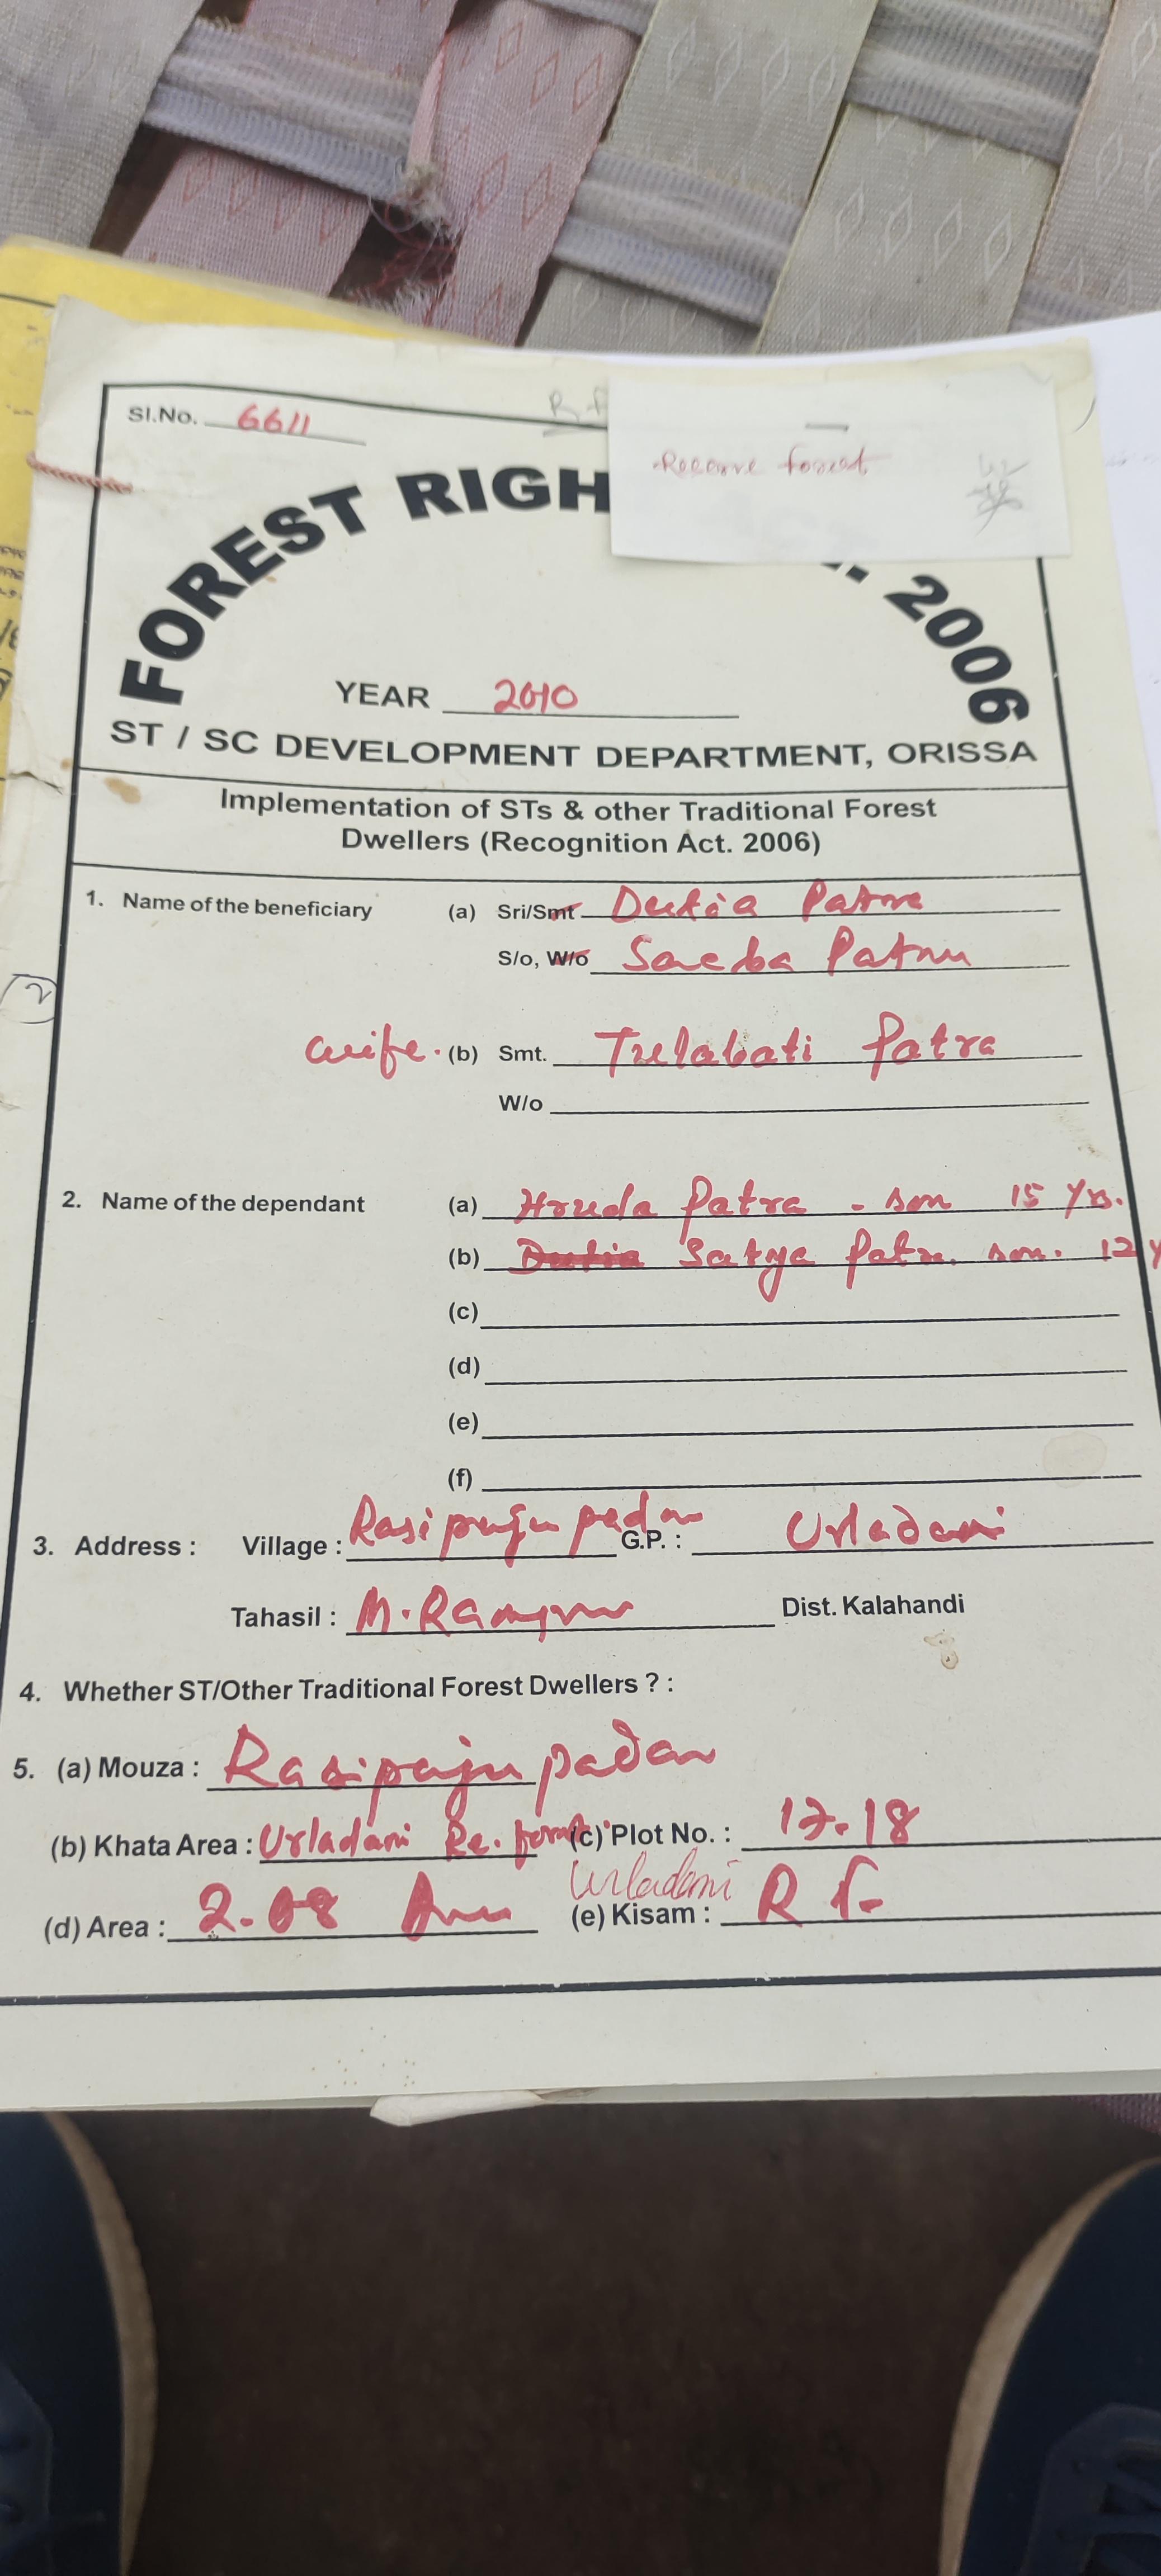 Sl.No. 6611
R.f
Reserve forest
FOREST RIGH 2006
YEAR 2010
ST / SC DEVELOPMENT DEPARTMENT, ORISSA
Implementation of STs & other Traditional Forest
Dwellers (Recognition Act. 2006)
1. Name of the beneficiary (a) Sri/Smt Dutia Patra
S/o, W/o Saeba Patra
2
wife. (b) Smt. Tulabati Patra
W/o
2. Name of the dependant (a) Hruda Patra - son 15 Yrs.
(b) Dutia Satya Patra son. 12 Y
(c)
(d)
(e)
(f)
3. Address : Village : Rasipujupadar G.P. : Urladani
Tahasil : M.Rampur Dist. Kalahandi
4. Whether ST/Other Traditional Forest Dwellers ? :
5. (a) Mouza : Rasipujupadar
(b) Khata Area : Urladani Re. forest (c) Plot No. : 17.18
Urladani
(d) Area : 2.08 (e) Kisam : R f.